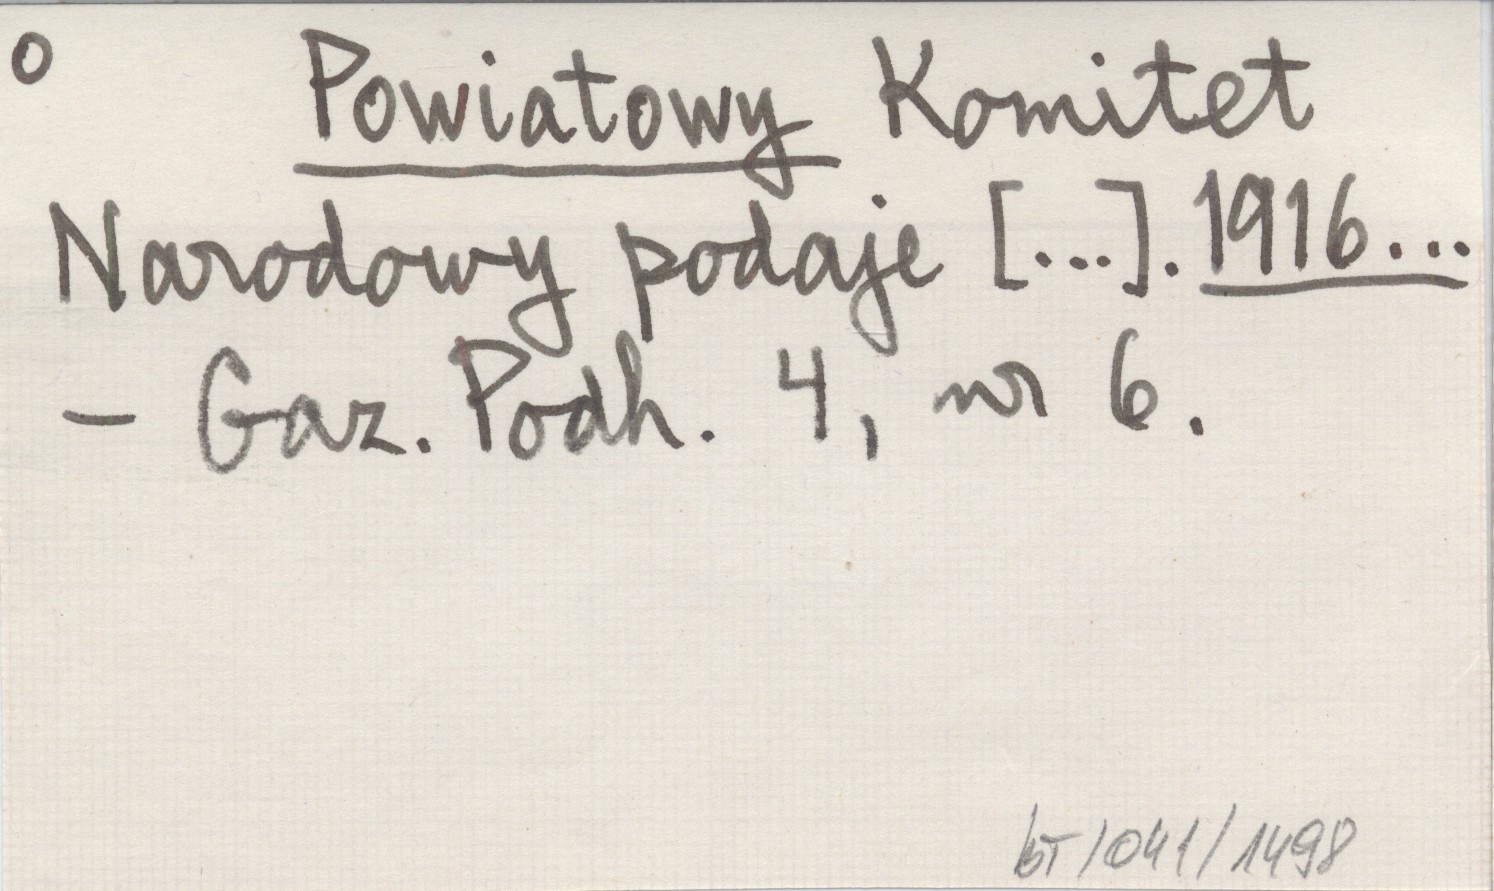 o Powiatowy Komitet
Narodowy podaje [...]. 1916...
– Gaz. Podh. 4, nr 6.
bT/041/1498